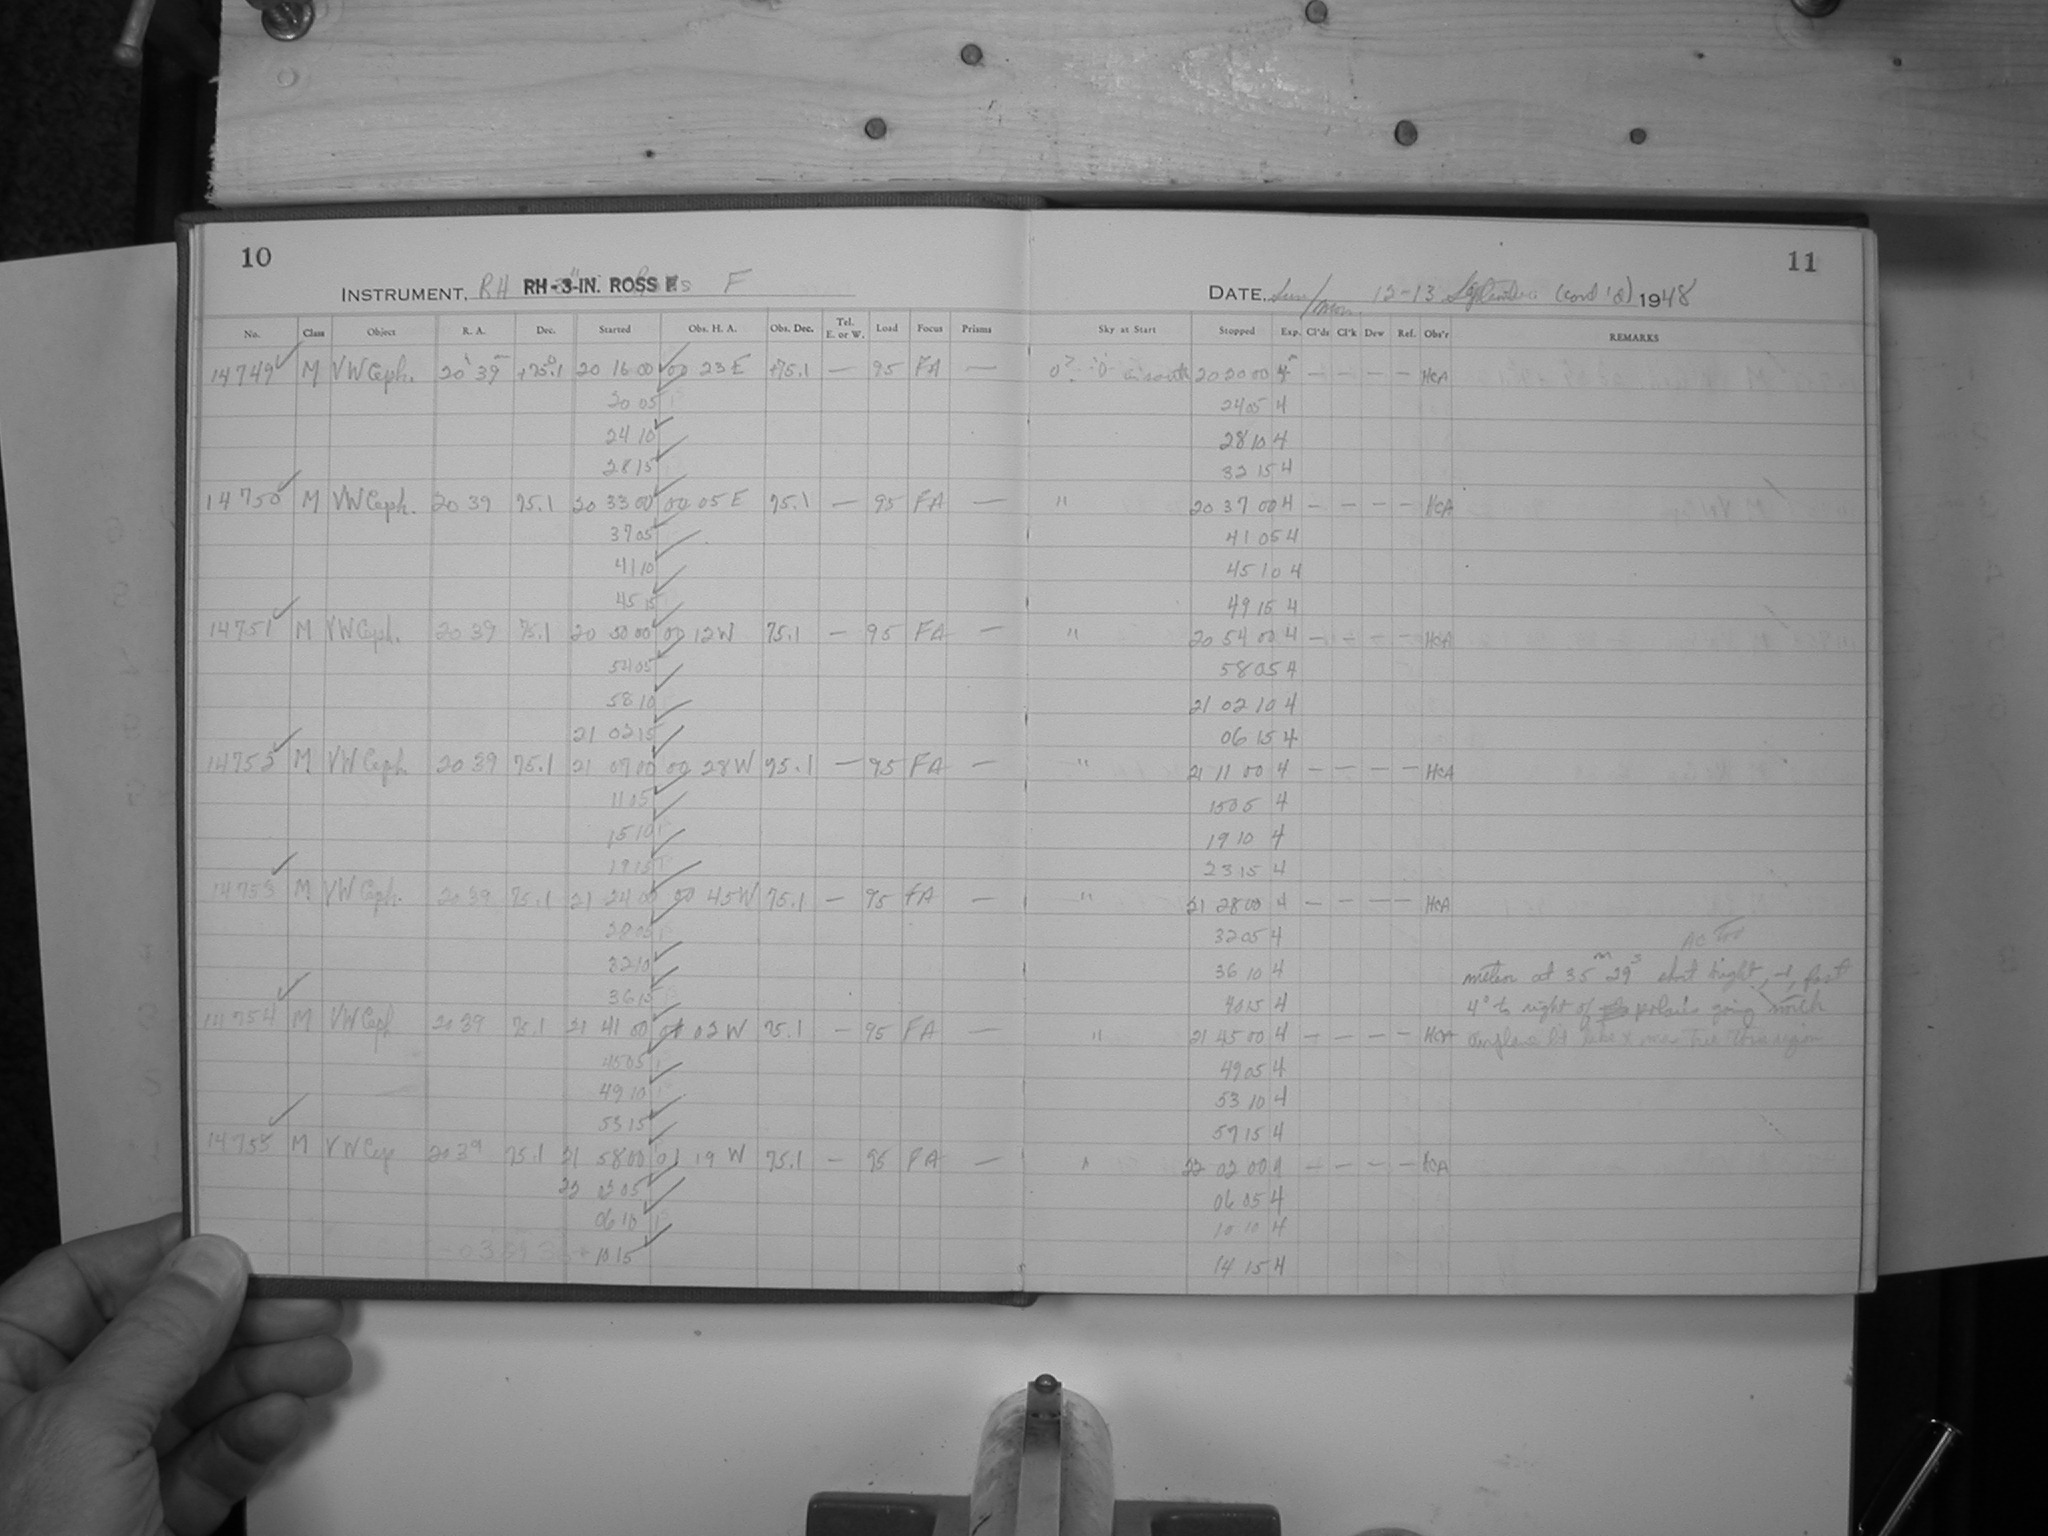 10
INSTRUMENT, RH RH-3-IN. ROSS F
No. Class Object R. A. Dec. Started Obs. H. A. Obs. Dec. Tel. E. or W. Load Focus Prisms
14749 M VW Ceph. 20 39 +75.1 20 16 00 00 23 E +75.1 — 95 FA —
20 05
24 10
28 15
14750 M VW Ceph. 20 39 75.1 20 33 00 00 05 E 75.1 — 95 FA —
37 05
41 10
45 15
14751 M VW Ceph. 20 39 75.1 20 50 00 00 12 W 75.1 — 95 FA —
54 05
58 10
21 02 15
14752 M VW Ceph. 20 39 75.1 21 07 00 00 28 W 75.1 — 95 FA —
11 05
15 10
19 15
14753 M VW Ceph. 20 39 75.1 21 24 00 00 45 W 75.1 — 95 FA —
28 05
32 10
36 15
14754 M VW Ceph 20 39 75.1 21 41 00 01 02 W 75.1 — 95 FA —
45 05
49 10
53 15
14755 M VW Cep 20 39 75.1 21 58 00 01 19 W 75.1 — 95 FA —
22 02 05
06 10
10 15
11
DATE, Sun/Mon. 12-13 September (cont'd) 1948
Sky at Start Stopped Exp. Cl'ds Cl'k Dew Ref. Obs'r REMARKS
in south 20 20 00 4 — — — — HCA
24 05 4
28 10 4
32 15 4
" 20 37 00 4 — — — — HCA
41 05 4
45 10 4
49 15 4
" 20 54 00 4 — — — — HCA
58 05 4
21 02 10 4
06 15 4
" 21 11 00 4 — — — — HCA
15 05 4
19 10 4
23 15 4
" 21 28 00 4 — — — — HCA
32 05 4
36 10 4 meteor at 35m 29s short bright, -1, fast
40 15 4 4° to right of polaris going north
" 21 45 00 4 — — — — HCA
49 05 4
53 10 4
57 15 4
" 22 02 00 4 — — — — HCA
06 05 4
10 10 4
14 15 4